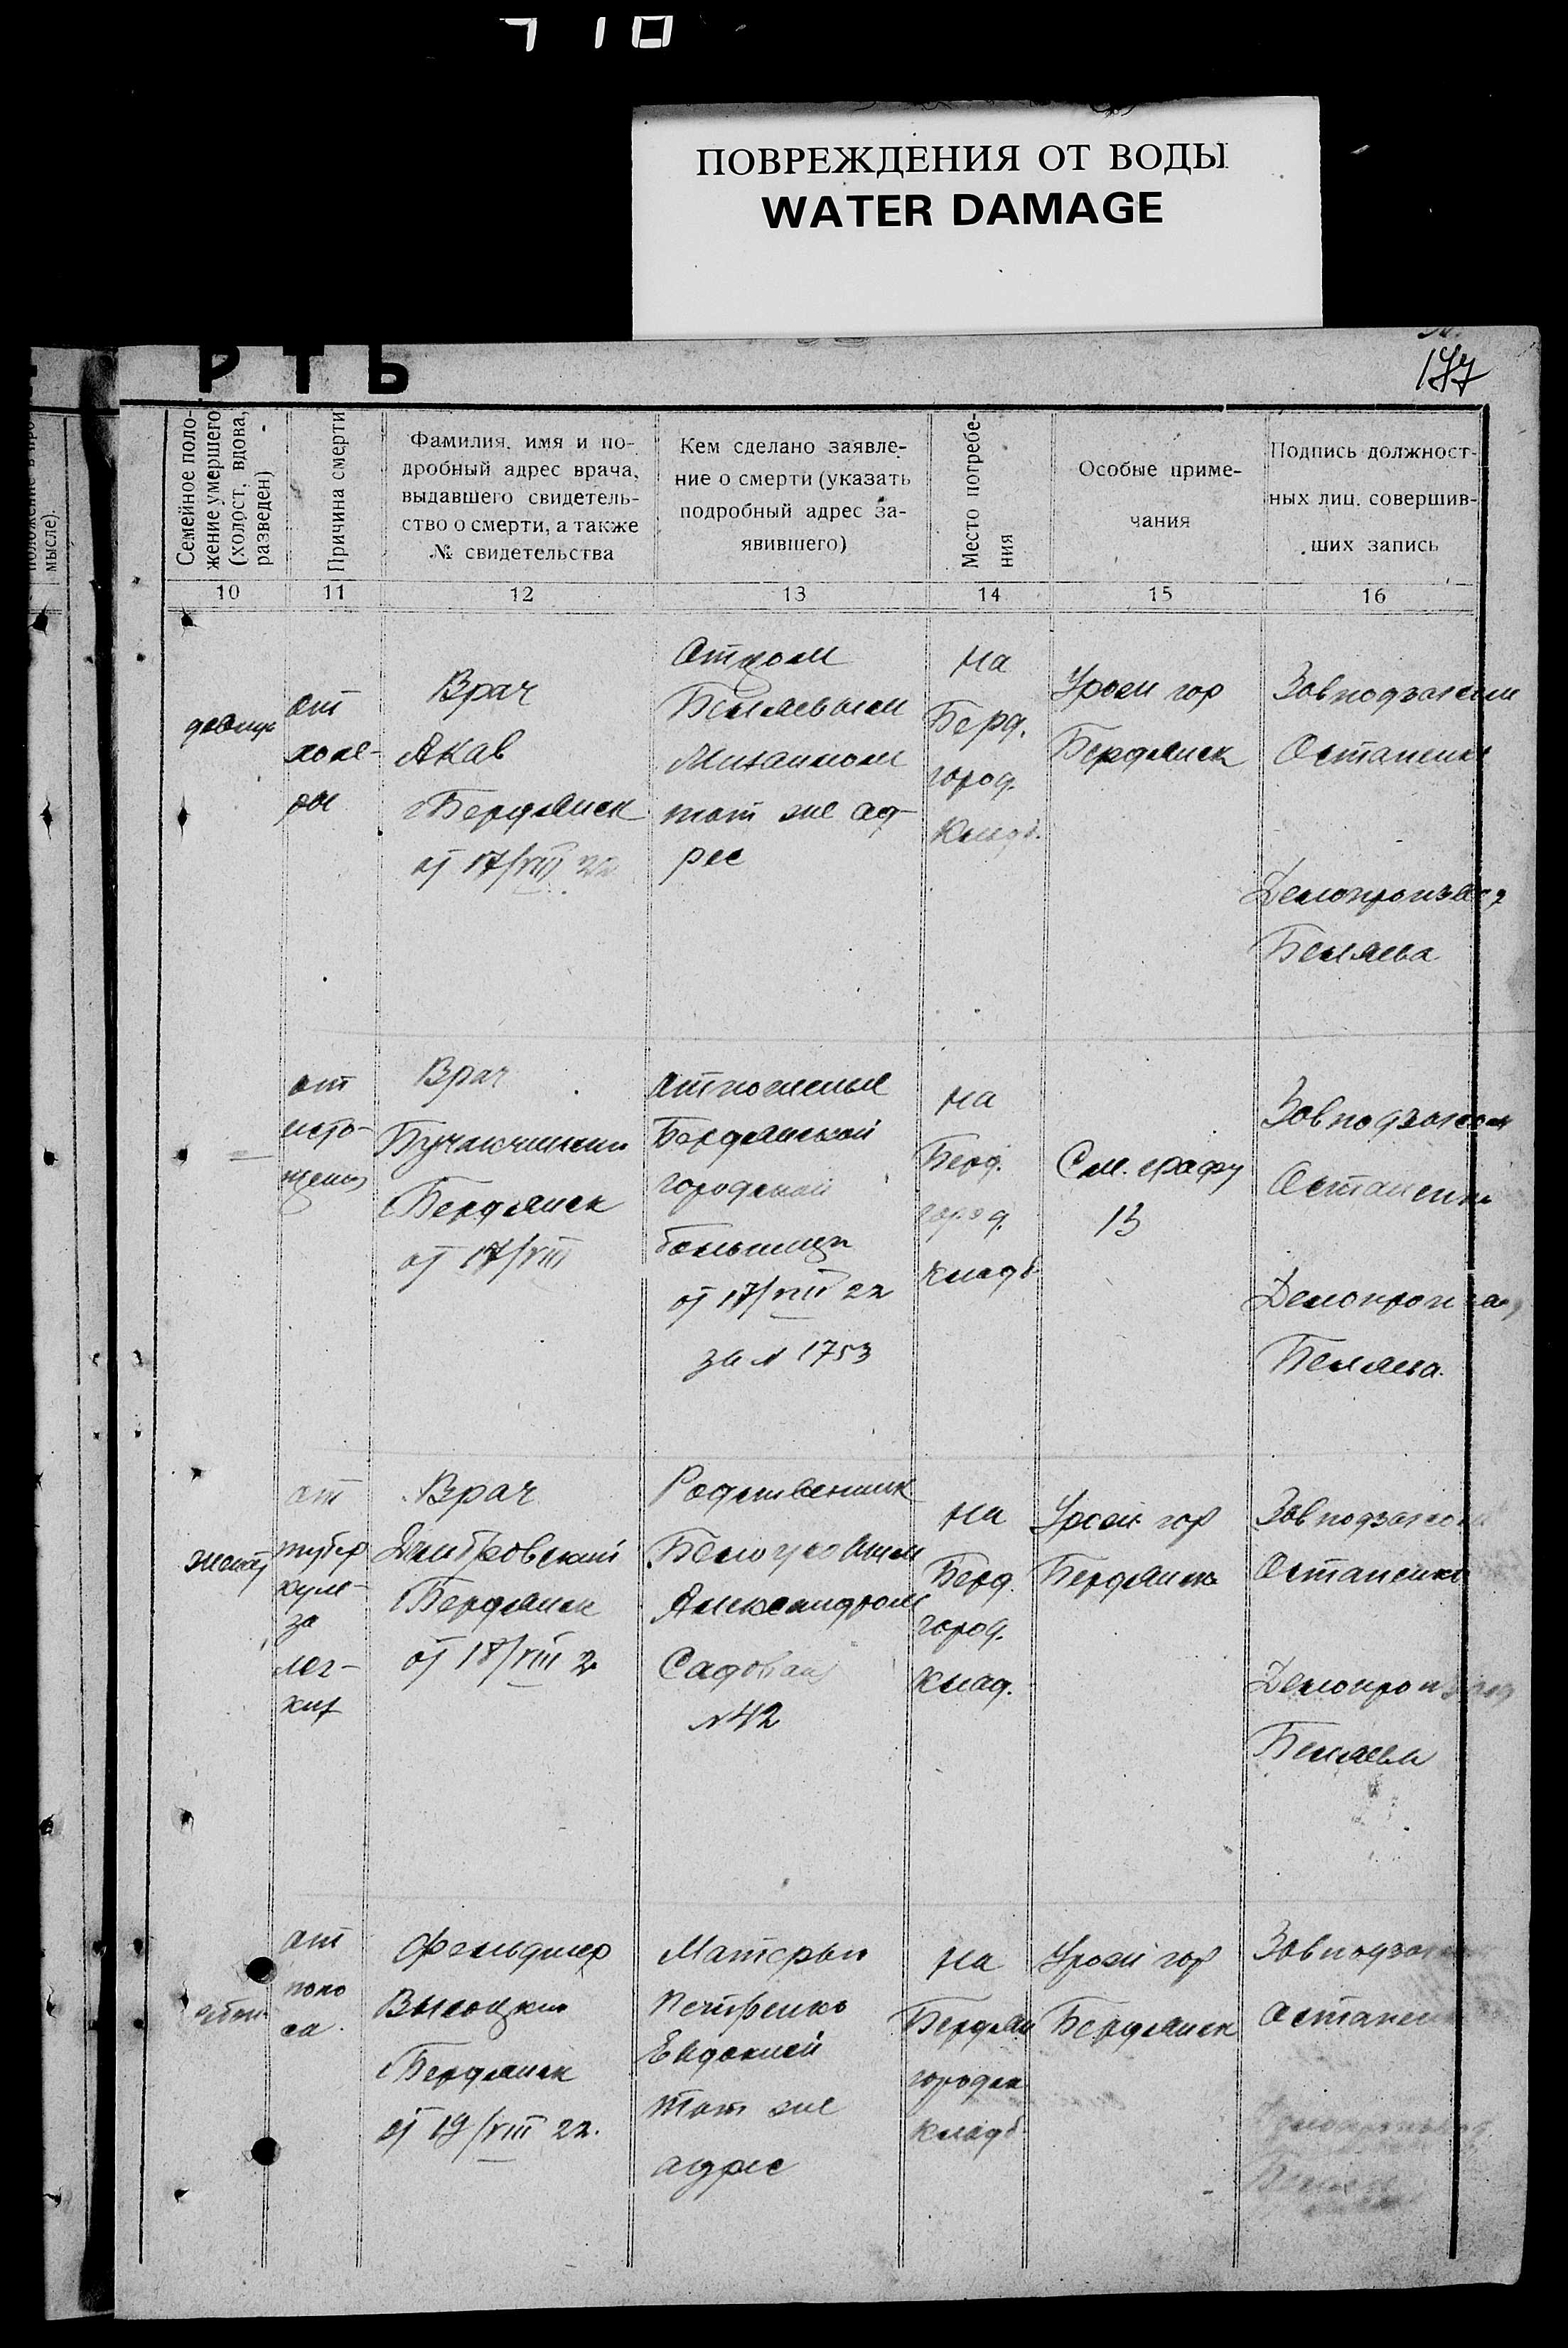 410
ПОВРЕЖДЕНИЯ ОТ ВОДЫ
WATER DAMAGE
РТЬ
177
мысле).
Семейное поло-
жение умершего
(холост, вдова,
разведен)
Причина смерти
Фамилия, имя и по-
дробный адрес врача,
выдавшего свидетель-
ство о смерти, а также
№ свидетельства
Кем сделано заявле-
ние о смерти (указать
подробный адрес за-
явившего)
Место погребе-
ния
Особые приме-
чания
Подпись должност-
ных лиц, совершив-
ших запись
10
11
12
13
14
15
16
от
холе-
ры
Врач
Акав
г Бердянск
от 17/VIII 22
Отцом
Беляевым
Михаилом
тот же ад-
рес
На
Берд.
город.
кладб.
Урож гор
Бердянск
Завподзагсом
Остапенко
Делопроизвод
Беляева
от
исто-
щения
Врач
г Бердянск
от 17/VIII
Отношение
Бердянской
городской
больницы
от 17/VIII 22
за N 1753
На
Берд.
город.
кладб
См. графу
13
Завподзагсом
Остапенко
Делопроизвод
Беляева.
женат
от
тубер
куле-
за
лег-
ких
Врач
Дмитровский
г Бердянск
от 18/VIII 22
Родственник
Белоусовым
Александром
Садовая
N 42
На
Берд.
город.
клад.
Урож гор
Бердянск
Завподзагсом
Остапенко
Делопроизвод
Беляева
от
поно
са
Фельдшер
Высоцкий
г Бердянск
от 19/VIII 22.
Матерью
Петренко
Евдокией
тот же
адрес
На
Бердян
городск
кладб
Урож гор
Бердянск
Завподзагсом
Остапенко
Делопроизвод.